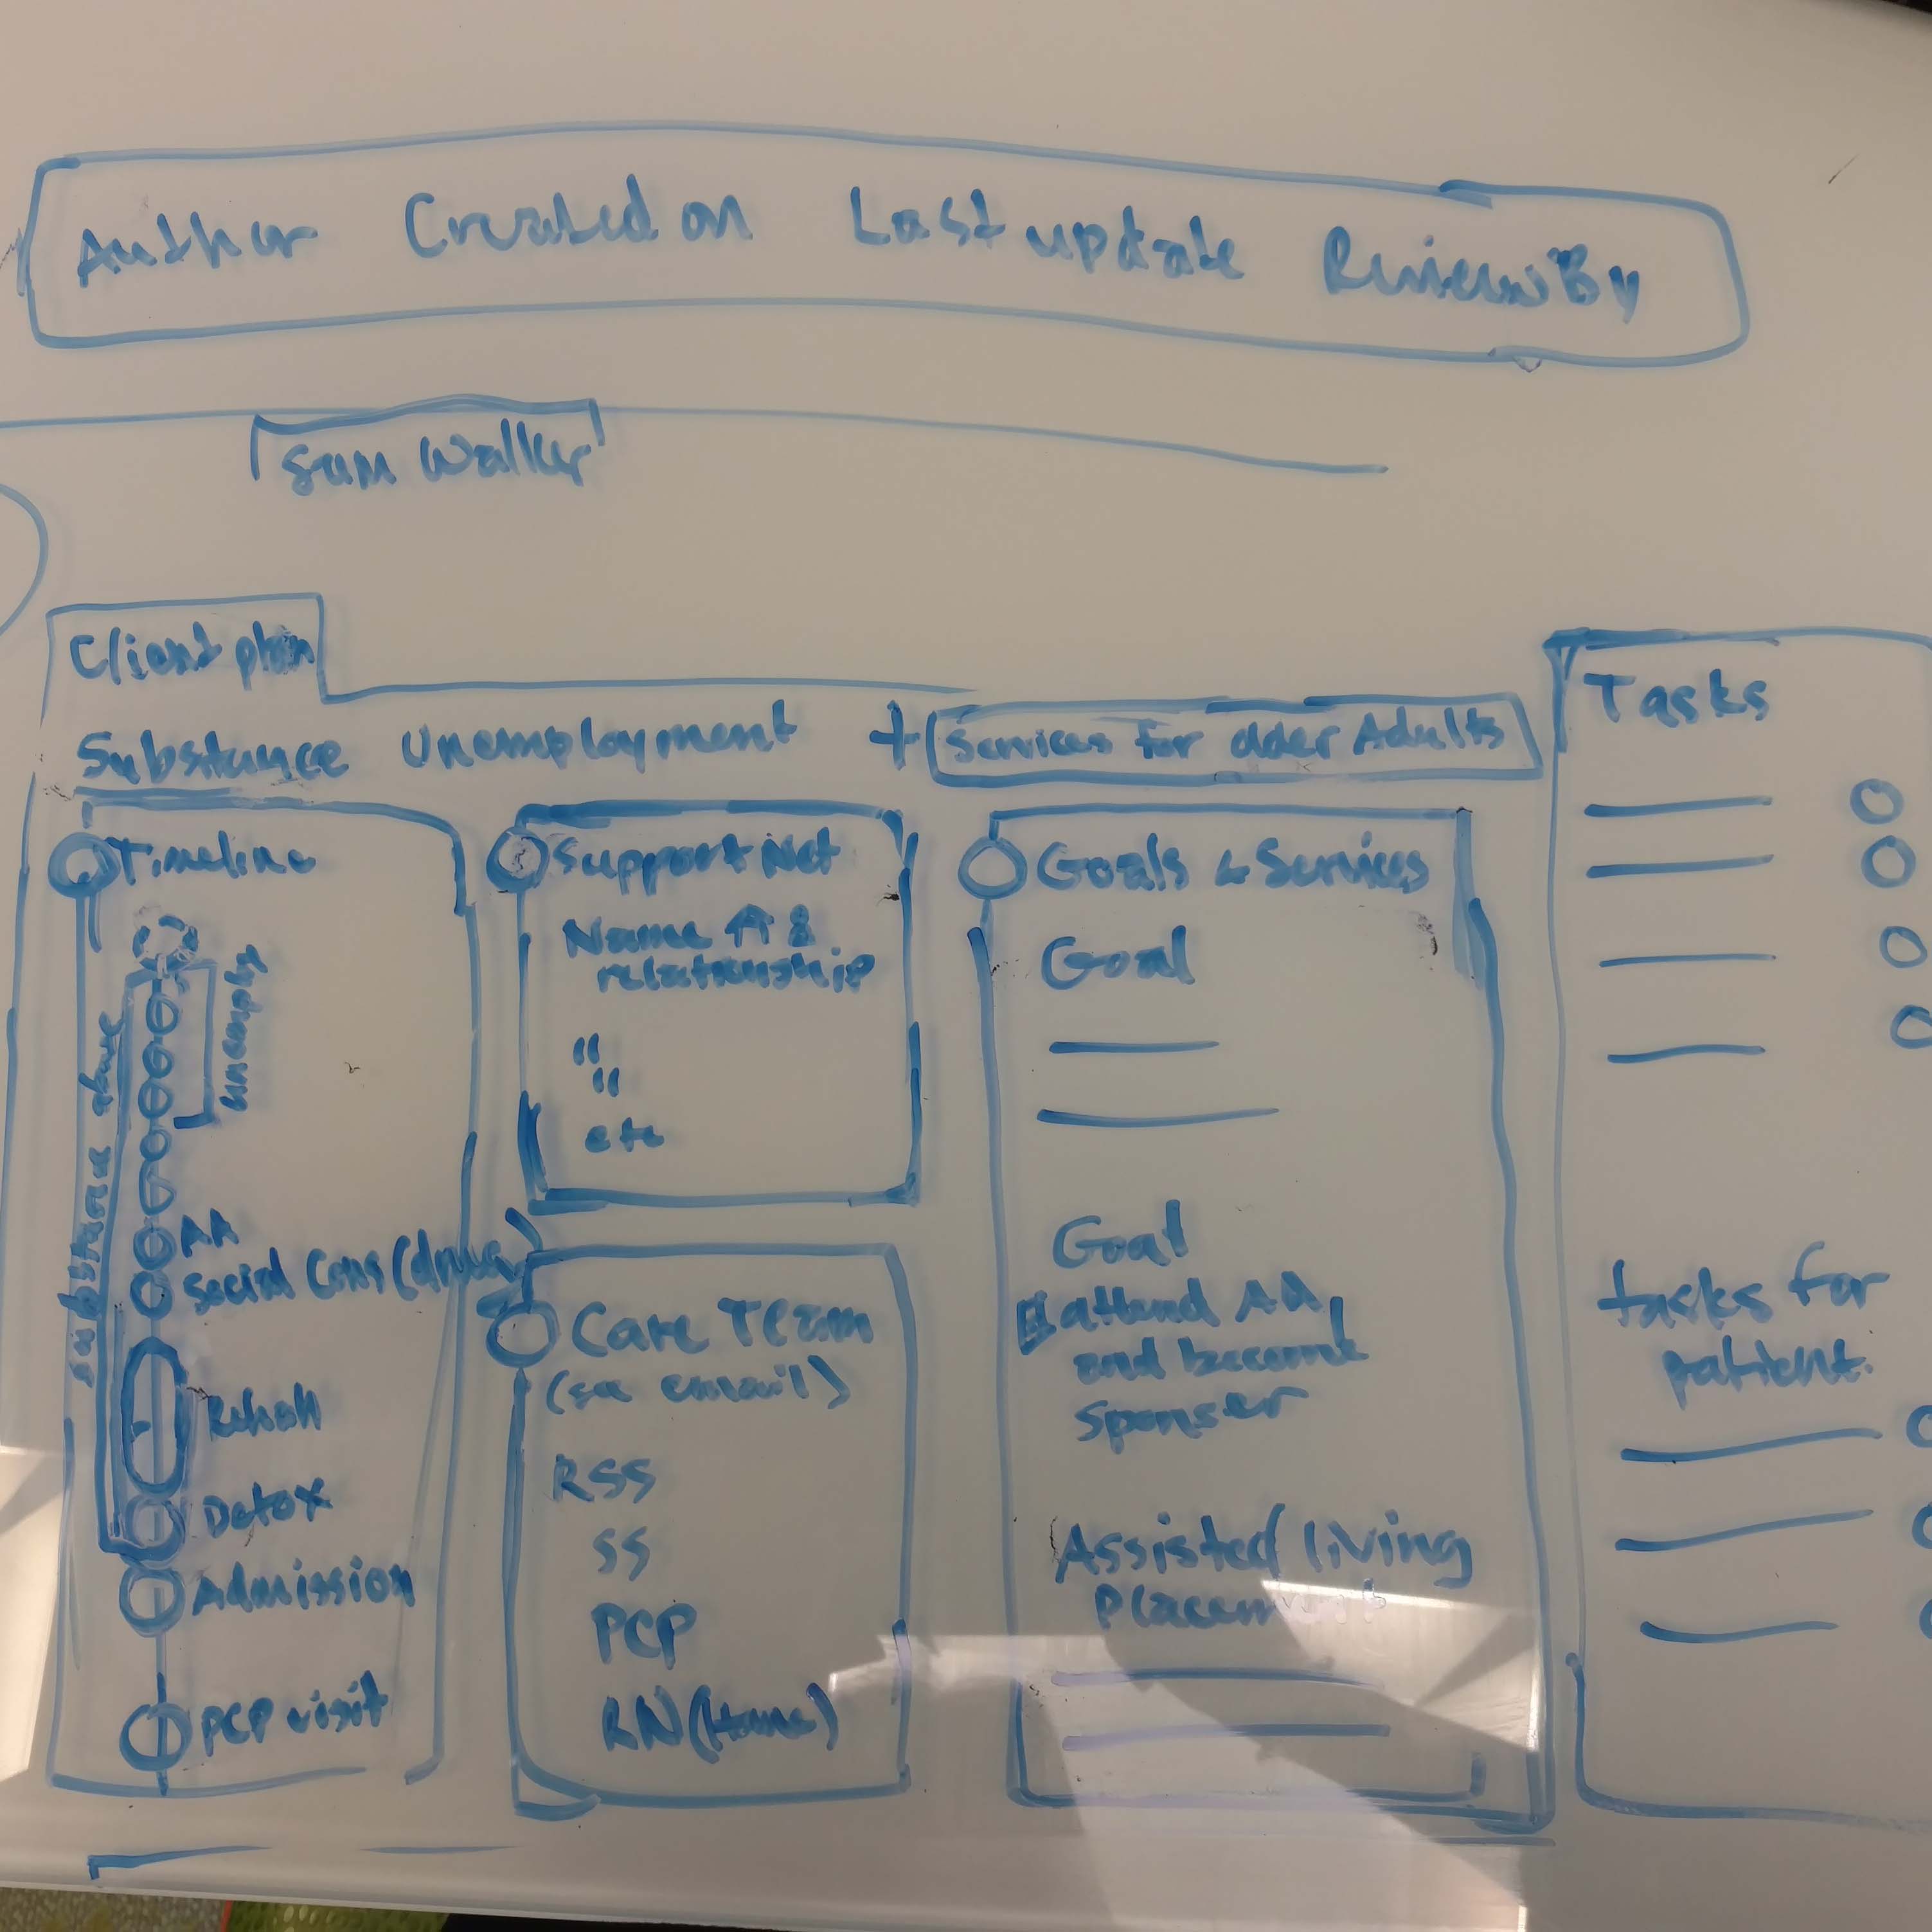 Author Created on Last update Review By
Sam Walker
Client plan
Substance Unemployment + Services for older Adults
Timeline
unemploy
substance abuse
AA
Social Cons (drug)
Rehab
Detox
Admission
PCP visit
Support Net
Name &
relationship
"
"
etc
Care Team
(see email)
RSS
SS
PCP
RN (Home)
Goals & Services
Goal
Goal
attend AA,
and become
sponser
Assisted living
placement
Tasks
tasks for
patient.